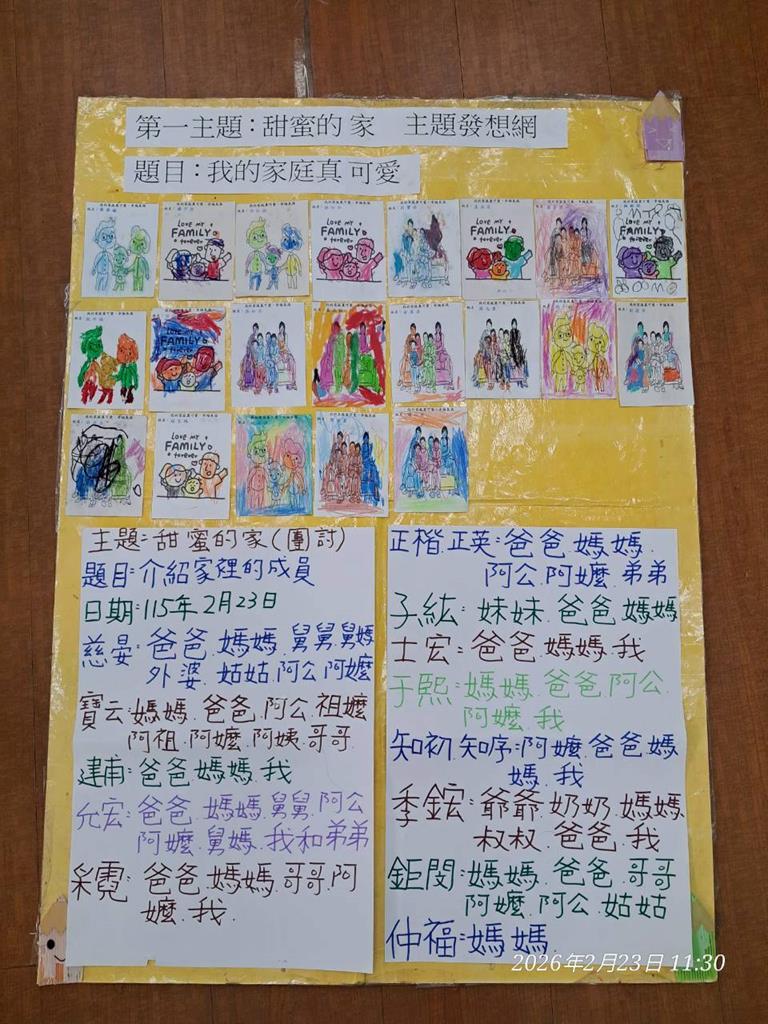 第一主題：甜蜜的家 主題發想網
題目：我的家庭真可愛
LOVE MY
FAMILY
forever
LOVE MY
FAMILY
forever
LOVE MY
FAMILY
forever
LOVE MY
FAMILY
forever
LOVE MY
FAMILY
forever
LOVE MY
FAMILY
forever
主題：甜蜜的家(團討)
題目：介紹家裡的成員
日期：115年2月23日
慈晏：爸爸.媽媽.舅舅.舅媽
外婆.姑姑.阿公.阿嬤
寶云：媽媽.爸爸.阿公.祖嬤
阿祖.阿嬤.阿姨.哥哥
建甫：爸爸.媽媽.我
允宏：爸爸.媽媽.舅舅.阿公
阿嬤.舅媽.我和弟弟
采霓：爸爸.媽媽.哥哥.阿
嬤.我.
正楷.正英：爸爸.媽媽.
阿公.阿嬤.弟弟
子紘：妹妹.爸爸.媽媽
士宏：爸爸.媽媽.我
于熙：媽媽.爸爸.阿公.
阿嬤.我
知初.知序：阿嬤.爸爸.媽
媽.我
季鋐：爺爺.奶奶.媽媽.
叔叔.爸爸.我
鉅閔：媽媽.爸爸.哥哥
阿嬤.阿公.姑姑
仲福：媽媽.
2026年2月23日 11:30